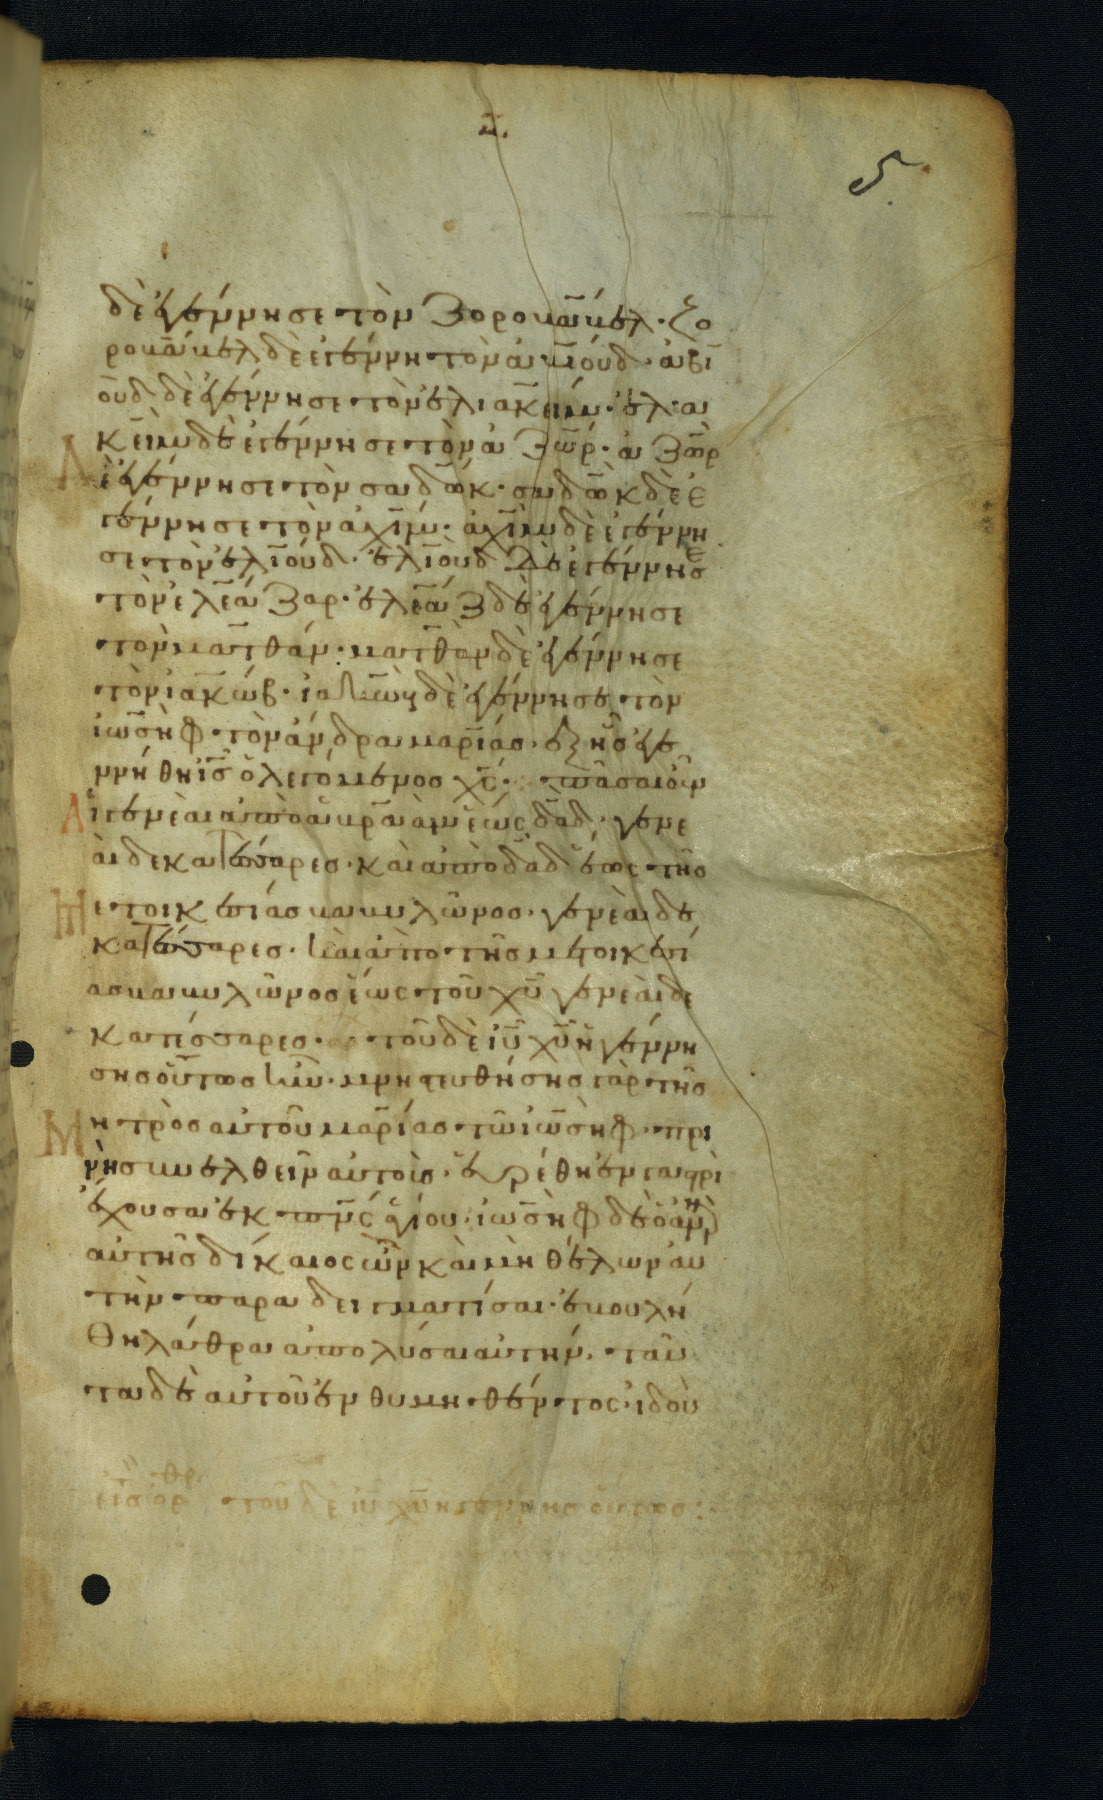 5.
δὲ ἐγέννησε τὸν Ζοροβάβελ· ζο
ροβάβελ δὲ ἐγέννη τὸν ἀβιούδ· ἀβι
οὺδ δὲ ἐγέννησε τὸν ἐλιακείμ· ἐλια
κεὶμ δὲ ἐγέννησε τὸν ἀζώρ· ἀζὼρ
δὲ ἐγέννησε τὸν σαδώκ· σαδὼκ δὲ ἐ
γέννησε τὸν ἀχίμ· ἀχὶμ δὲ ἐγέννη
σε τὸν ἐλιούδ· ἐλιοὺδ δὲ ἐγέννησε
τὸν ἐλεάζαρ· ἐλεάζ δὲ ἐγέννησε
τὸν ματθάν· ματθὰν δὲ ἐγέννησε
τὸν ἰακώβ· ἰακὼβ δὲ ἐγέννησε τὸν
ἰωσὴφ τὸν ἄνδρα μαρίας· ἐξ ἧς ἐγε
ννήθη ι̅ς̅ ὁ λεγόμενος χ̅ς̅· πᾶσαι οὖν
αἱ γενεαὶ ἀπὸ ἀβραὰμ ἕως δ̅α̅δ̅· γενε
αὶ δεκατέσσαρες· καὶ ἀπὸ δ̅α̅δ̅ ἕως τῆς
μετοικεσίας βαβυλῶνος· γενεαὶ δε
κατέσσαρες· καὶ ἀπὸ τῆς μετοικεσί
ας βαβυλῶνος ἕως τοῦ χ̅υ̅ γενεαὶ δε
κατέσσαρες· τοῦ δὲ ι̅υ̅ χ̅υ̅ ἡ γέννη
σης οὕτως ἦν· μνηστευθήσης γὰρ τῆς
μητρὸς αὐτοῦ μαρίας τῶ ἰωσὴφ· πρι
νὴ συνελθεῖν αὐτοὺς· εὑρέθη ἐν γαστρὶ
ἔχουσα ἐκ π̅ν̅ς̅ ἁγίου· ἰωσὴφ δὲ ὁ ἀνὴρ
αὐτῆς δίκαιος ὢν καὶ μὴ θέλων αὐ
τὴν παραδειγματίσαι· ἐβουλή
θη λάθρα ἀπολύσαι αὐτήν· ταῦ
τα δὲ αὐτοῦ ἐνθυμηθέντος· ἰδοὺ
τοῦ δὲ ι̅υ̅ χ̅υ̅ ἡ γέννησ οὕτως: